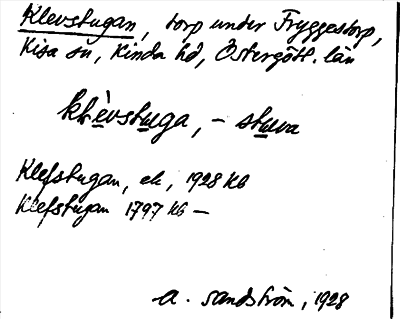 Klevstugan, torp under Fryggestorp,
Kisa sn, Kinda hd, Östergötl. län
klèvstuga, - stuva
Klefstugan, ek, 1928 KB
Klefstugan 1797 KB —
A. Sandström, 1928